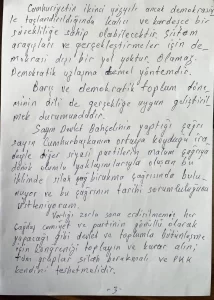 Cumhuriyetin ikinci yüzyılı ancak demokrasi
ile taçlandırıldığında kalıcı ve kardeşçe bir
sürekliliğe sahip olabilecektir. Sistem
arayışları ve gerçekleştirmeler için de-
mokrasi dışı bir yol yoktur. Olamaz.
Demokratik uzlaşma temel yöntemdir.
Barış ve demokratik toplum döne-
minin dili de gerçekliğe uygun geliştiril-
mek durumundadır.
Sayın Devlet Bahçelinin yaptığı çağrı
sayın Cumhurbaşkanının ortaya koyduğu ira
deyle diğer siyasi partilerin malum çağrıya
dönük olumlu yaklaşımlarıyla oluşan bu
iklimde silah bırakma çağrısında bulu-
nuyor ve bu çağrının tarihi sorumluluğunu
üstleniyorum.
Varlığı zorla sona erdirilmemiş her
çağdaş cemiyet ve partinin gönüllü olarak
yapacağı gibi devlet ve toplumla bütünleşme
için kongrenizi toplayın ve karar alın;
tüm gruplar silah bırakmalı ve PKK
kendini feshetmelidir.
- 3 -